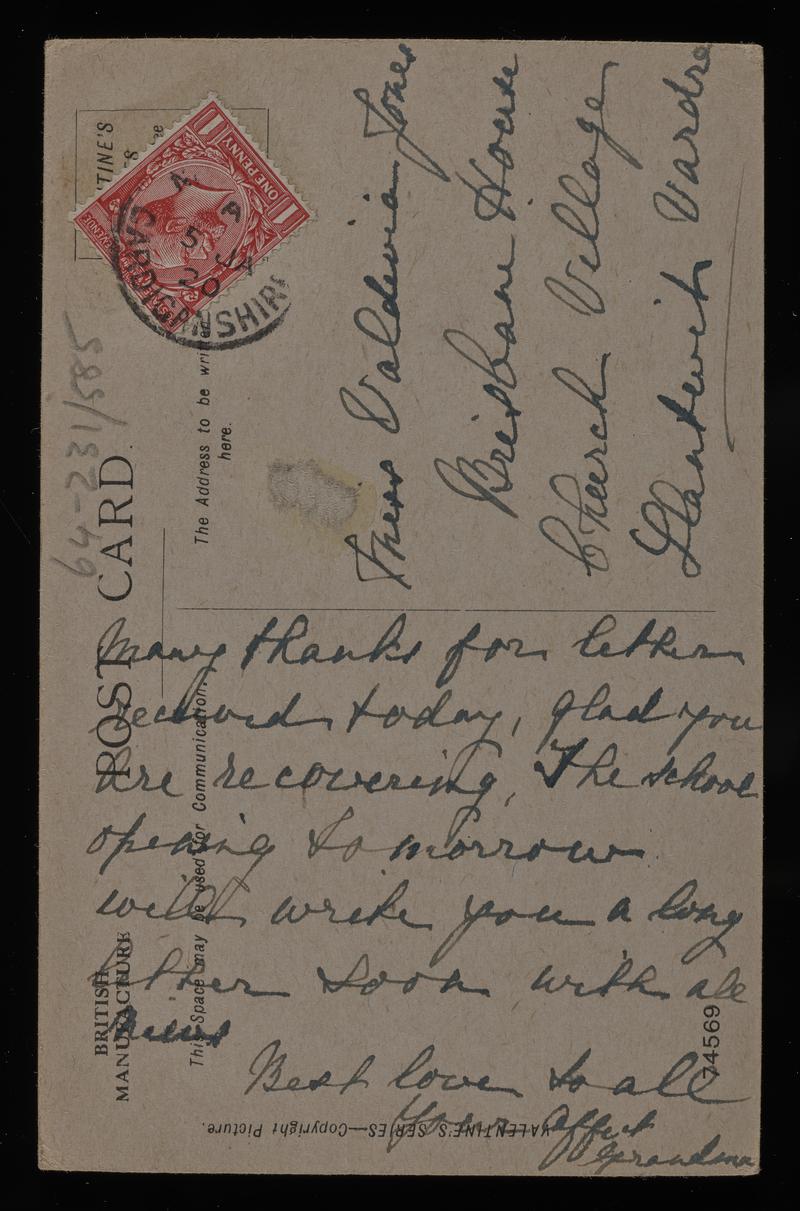 POST CARD.
64-231/585
The Address to be written
here.
This Space may be used for Communication.
BRITISH
MANUFACTURE
ONE PENNY
1
1
REVENUE
CARDIGANSHIRE
A
5 JA
20
Miss Valdwin Jones
Brisbane House
Church Village
Llantwit Vardre
Many thanks for letter
received today, glad you
are recovering, The school
opening tomorrow
will write you a long
letter soon with all
news
Best love to all
Your Affect
Grandma
74569
VALENTINE'S SERIES—Copyright Picture.